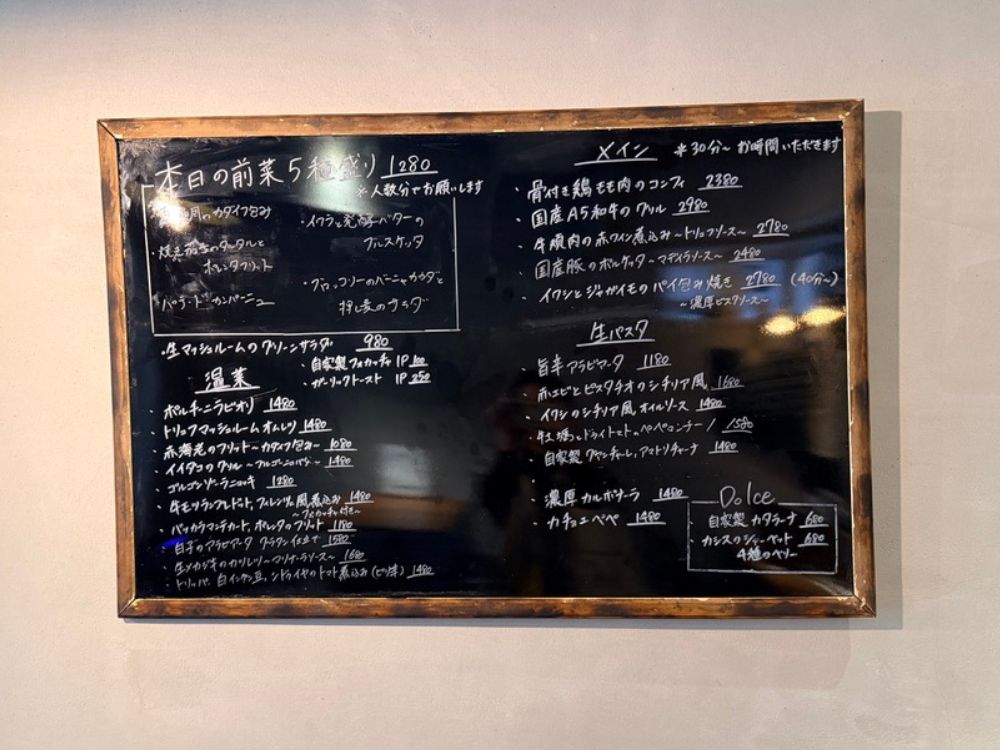 本日の前菜5種盛り 1280
※人数分でお願いします
のカダイフ包み
・イクラと発酵バターの
ブルスケッタ
タルタルと
ポレンタフリット
・ブロッコリーのバーニャカウダと
押し麦のサラダ
パテ・ド・カンパーニュ
・生マッシュルームのグリーンサラダ 980
・自家製フォカッチャ 1P 100
・ガーリックトースト 1P 250
温菜
・ポルチーニラビオリ 1480
・トリュフマッシュルームオムレツ 1480
・赤海老のフリット～カダイフ包み～ 1080
・イイダコのグリル～ブルゴーニュバター～ 1480
・ゴルゴンゾーラニョッキ 1280
・牛モツランプレドット、フィレンツェ風煮込み 1480
～フォカッチャ付き～
・バッカラマンテカート、ポレンタのフリット 1180
・白子のアラビアータ グラタン仕立て 1580
・生メカジキのカツレツ～マリナーラソース～ 1680
・トリッパ、白インゲン豆、のトマト煮込み(ピリ辛) 1480
メイン ※30分～お時間いただきます
・骨付き鶏もも肉のコンフィ 2380
・国産A5和牛のグリル 2980
・牛頬肉の赤ワイン煮込み～トリュフソース～ 2780
・国産豚のポルケッタ～マデイラソース～ 2480
・イワシとジャガイモのパイ包み焼き 2780 (40分～)
～濃厚ビスクソース～
生パスタ
・旨辛アラビアータ 1180
・赤エビとピスタチオのシチリア風 1680
・イワシのシチリア風オイルソース 1480
・牡蠣とドライトマトのペペロンチーノ 1580
・自家製グアンチャーレ、アマトリチャーナ 1480
・濃厚カルボナーラ 1480
・カチョエペペ 1480
Dolce
・自家製カタラーナ 680
・カシスのシャーベット 680
4種のベリー